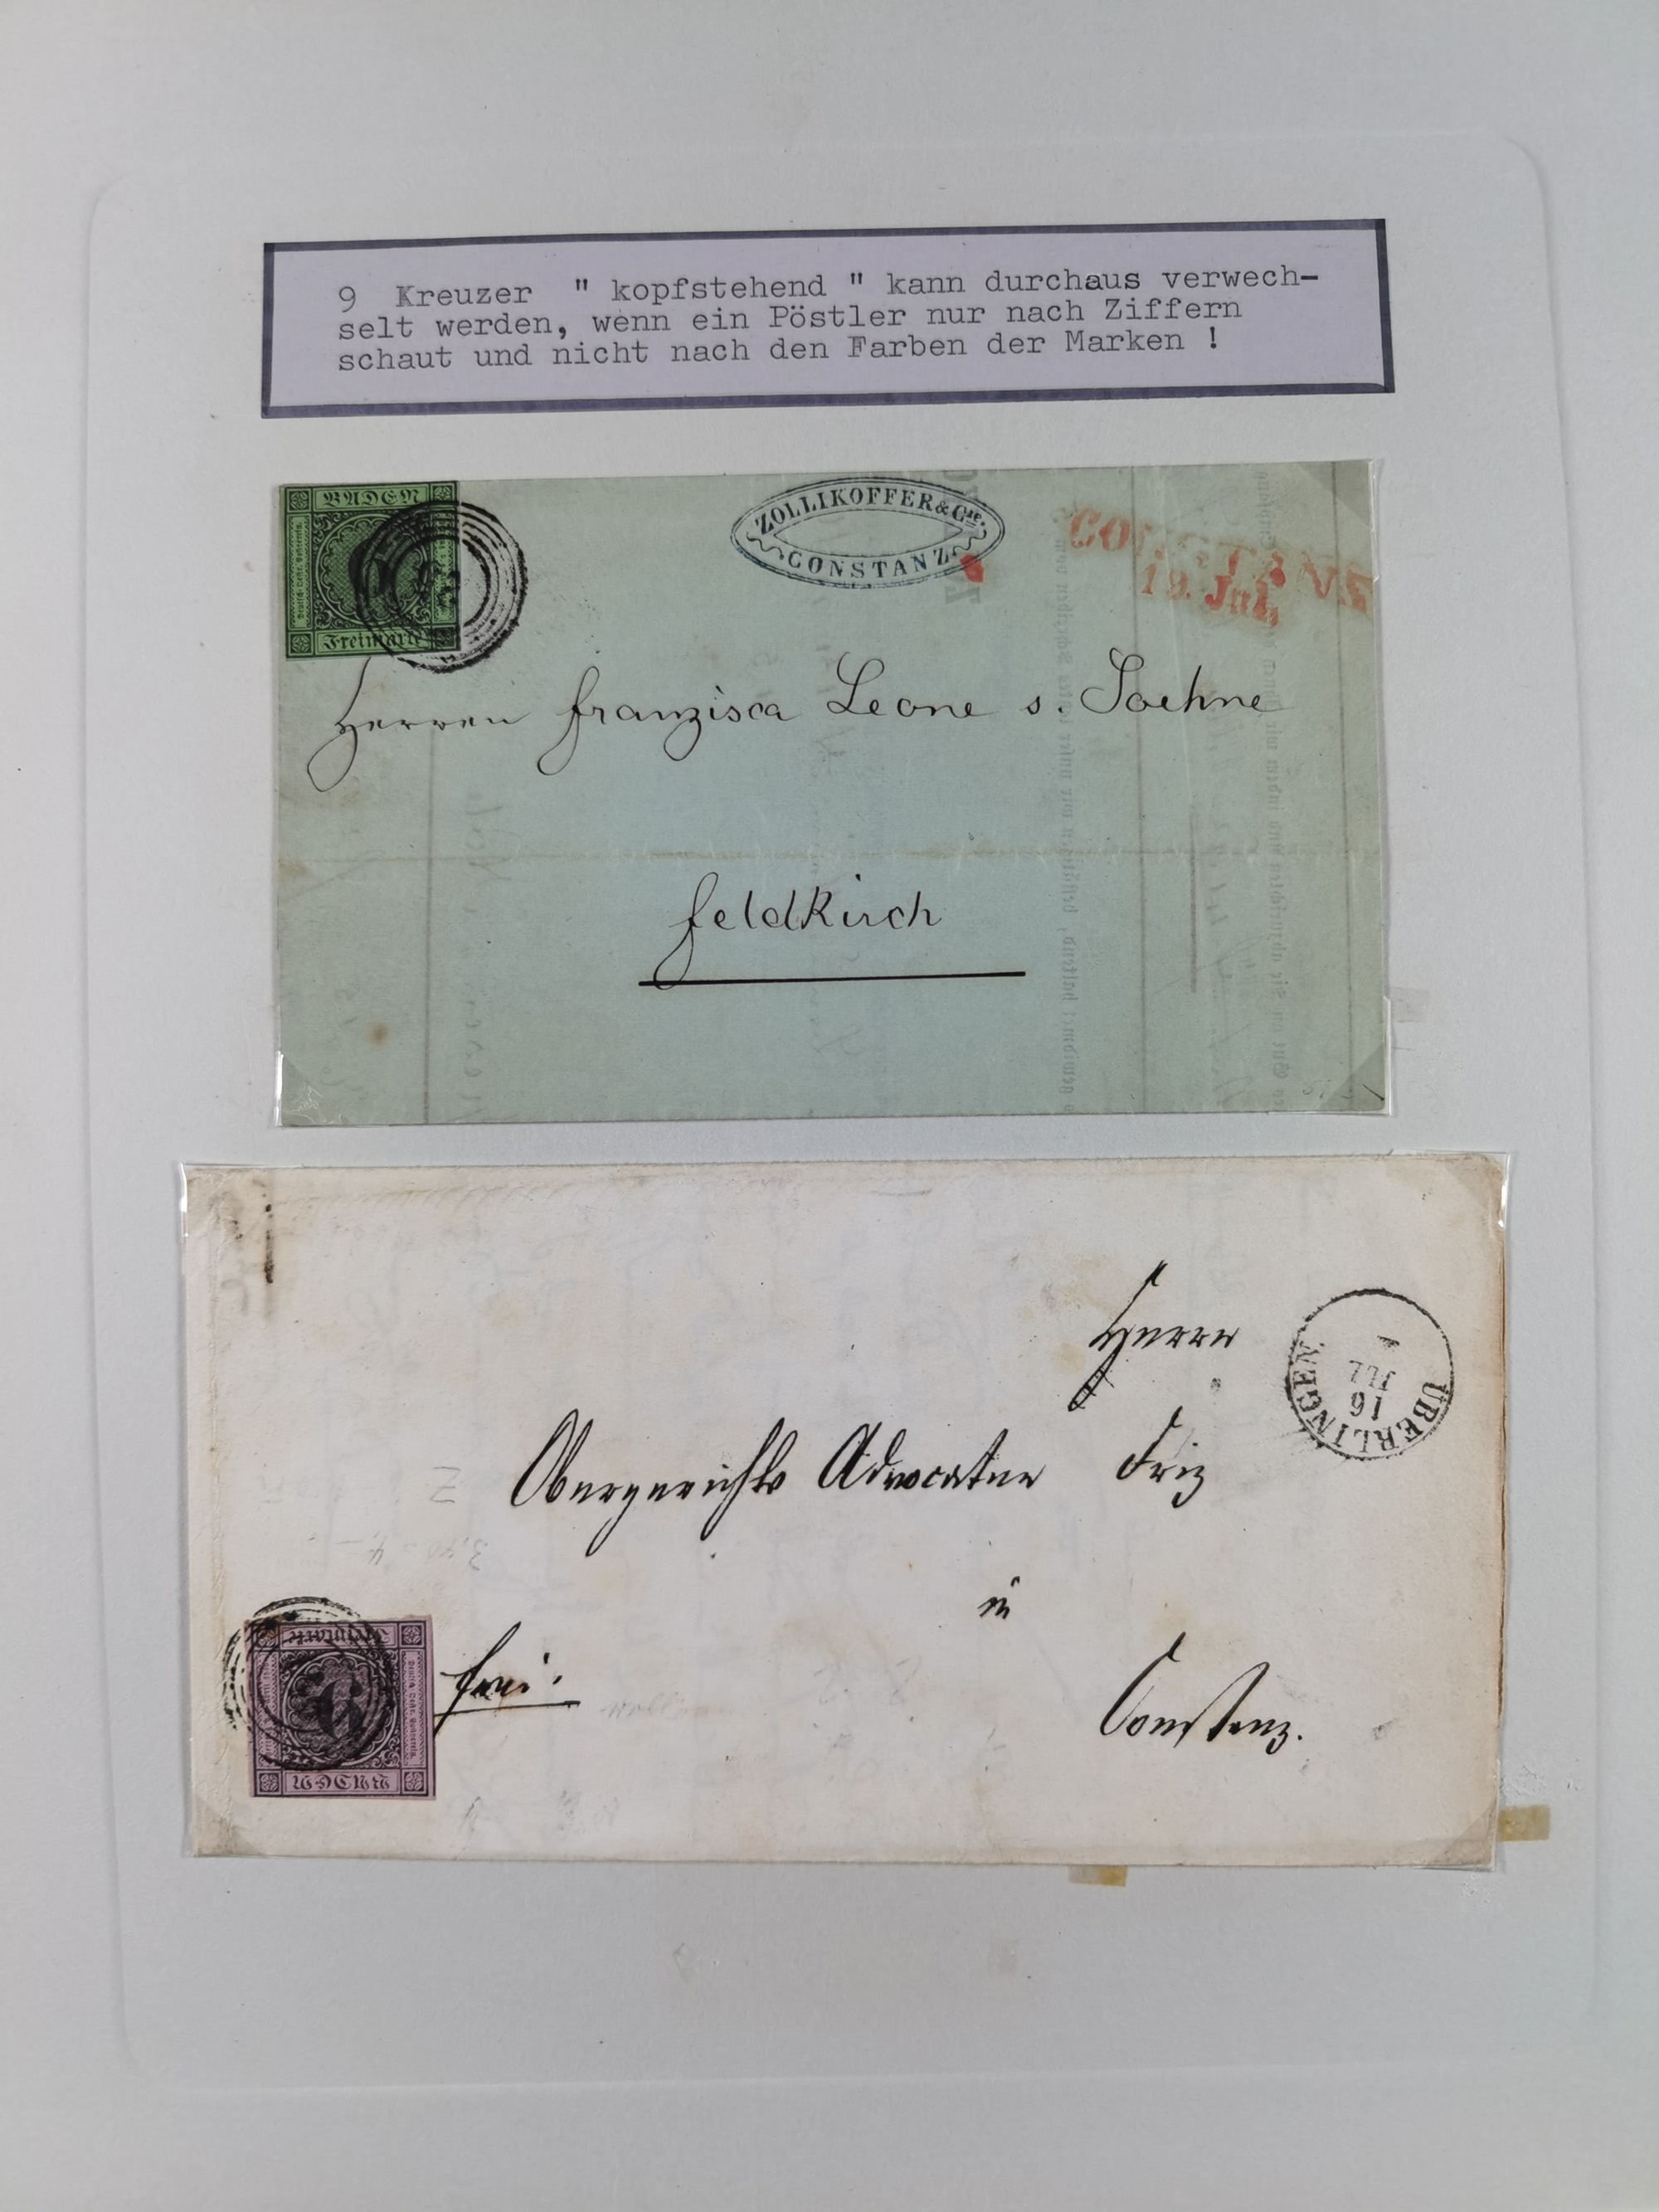 9 Kreuzer " kopfstehend " kann durchaus verwech-
selt werden, wenn ein Pöstler nur nach Ziffern
schaut und nicht nach den Farben der Marken !
BADEN
Freimarke
ZOLLIKOFFER & Cie.
CONSTANZ
CONSTANZ
19. Jul.
Herren Franzisca Leone s. Soehne
Feldkirch
Herrn
ÜBERLINGEN
16
JUL
Obergerichts Advocaten Friz
in
Constanz.
frei.
Freimarke
BADEN